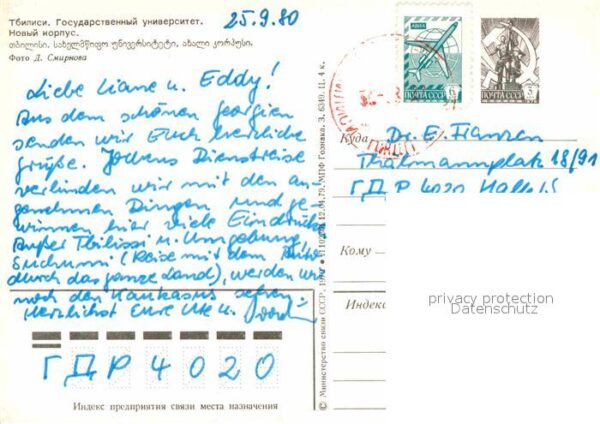 Тбилиси. Государственный университет.
Новый корпус.
თბილისი. სახელმწიფო უნივერსიტეტი. ახალი კორპუსი.
Фото Д. Смирнова
25.9.80
Liebe Liane u. Eddy!
Aus dem schönen Georgien
senden wir Euch herzliche
Grüße. Jochens Dienstreise
verbinden wir mit den an-
genehmen Dingen und ge-
winnen hier viele Eindrücke
Außer Tbilissi u. Umgebung,
Suchumi (Reise mit dem Auto
durch das ganze Land), werden wir
noch den Kaukasus sehen.
Herzlichst Eure Ute u.
ГДР 4020
Индекс предприятия связи места назначения
© Министерство связи СССР, 197
12.04.79. МПФ Гознака. З. 6340. Ц. 4 к.
АВИА
ПОЧТА СССР 6
ПОЧТА СССР
Куда Dr. E. Franzen
Thälmannplatz 18/91
ГДР 4020 Halle
Кому
Индекс
privacy protection
Datenschutz